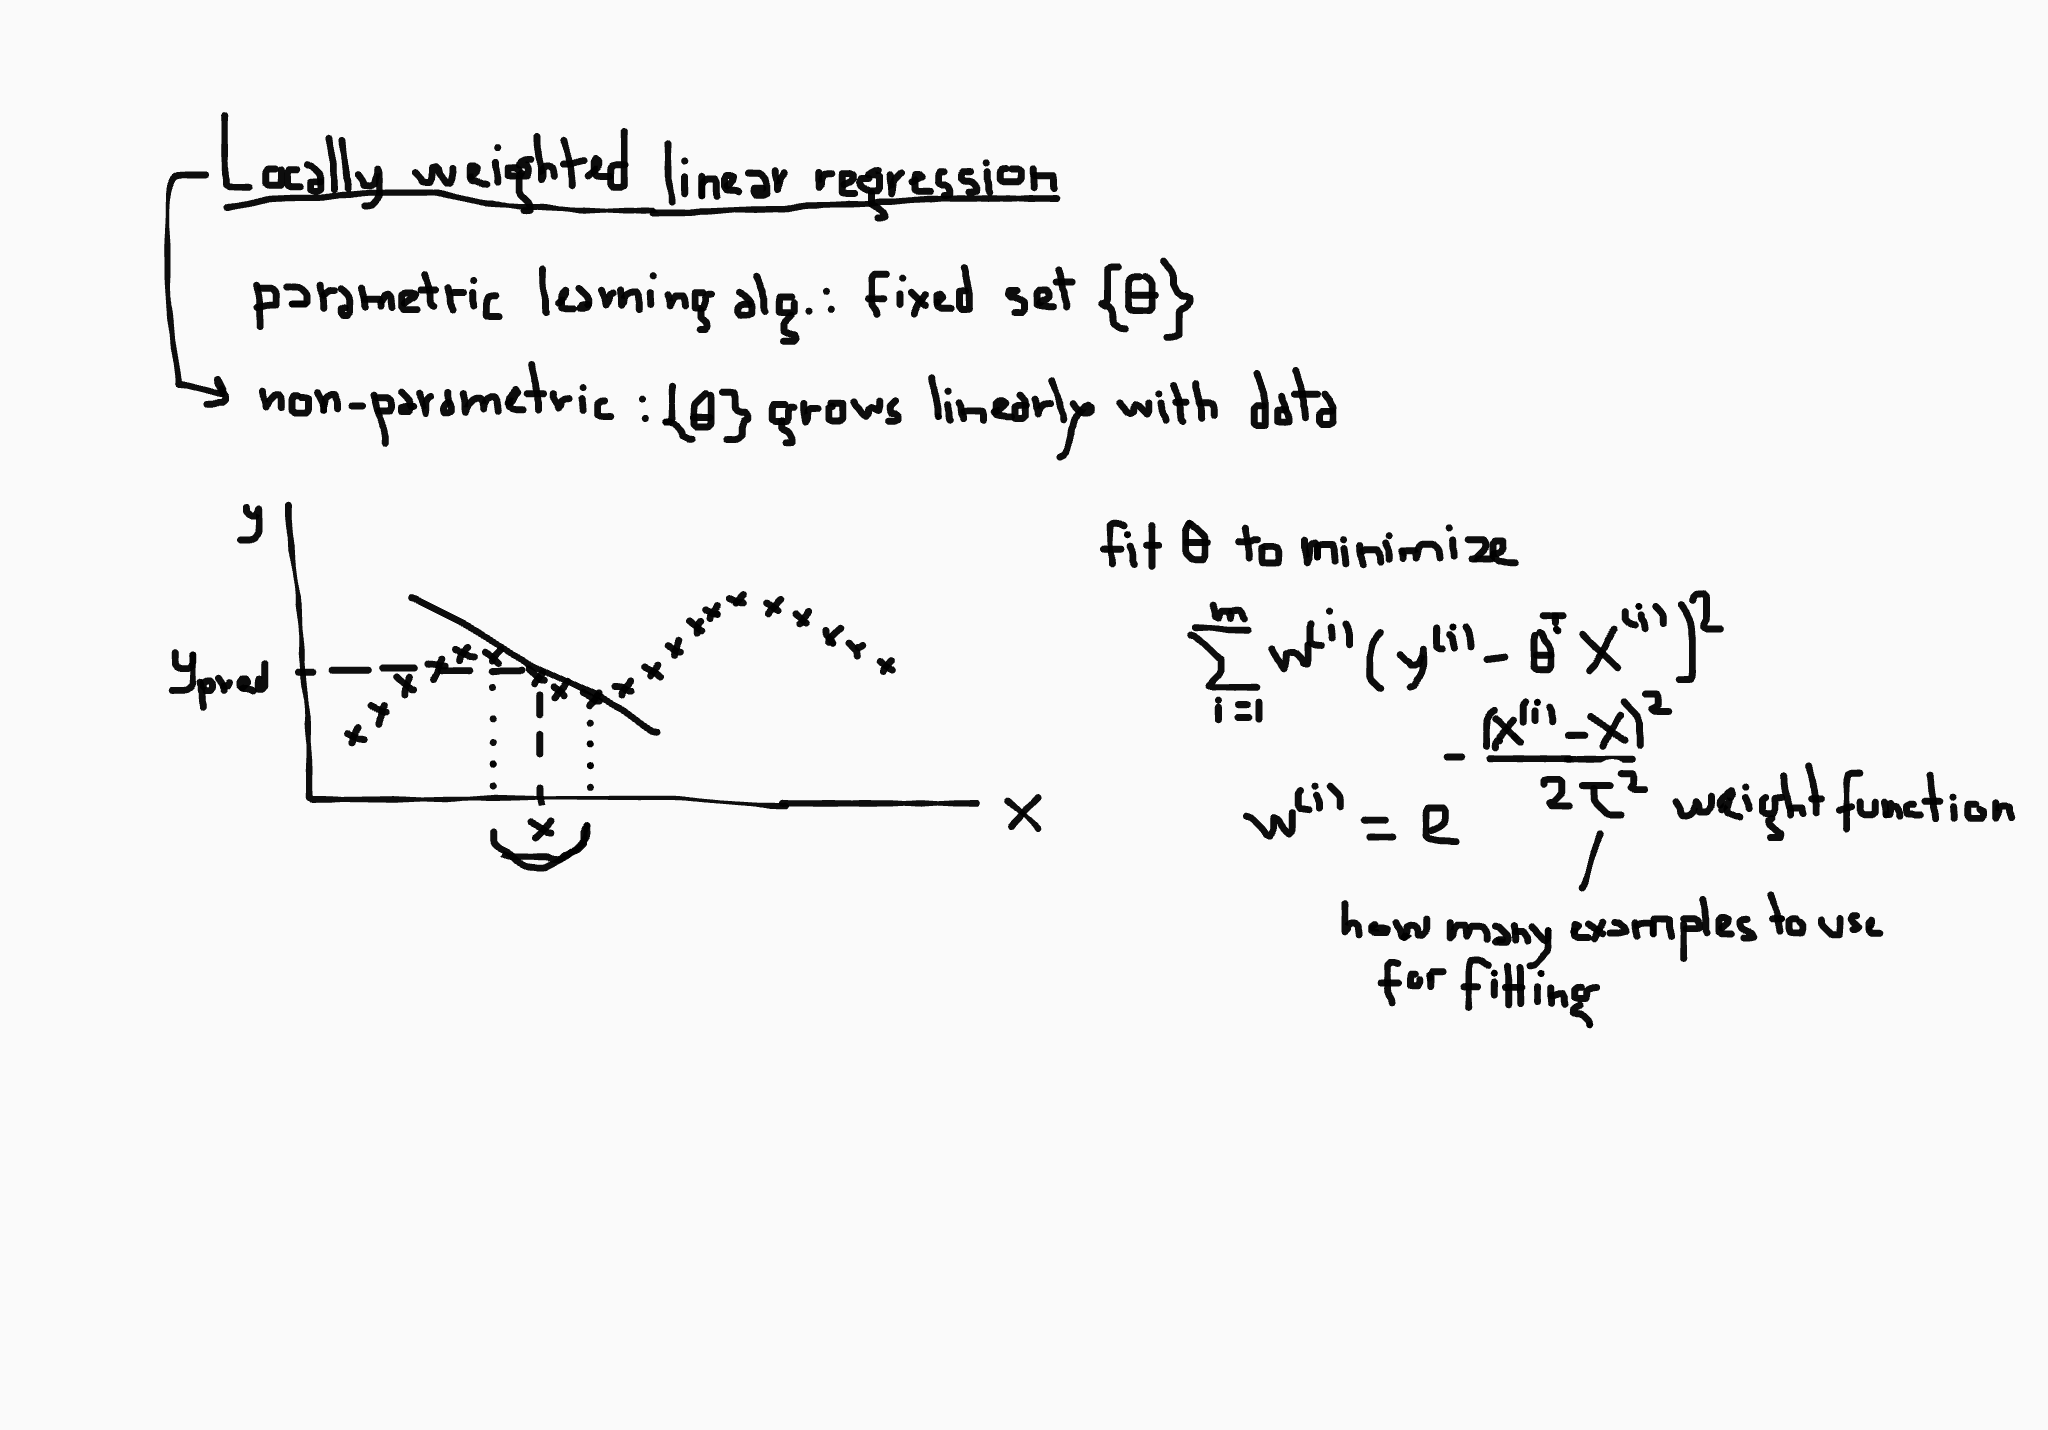 Locally weighted linear regression
parametric learning alg.: fixed set {θ}
non-parametric : {θ} grows linearly with data
y
y_pred
x
X
fit θ to minimize
∑_{i=1}^{m} w^{(i)} (y^{(i)} - θ^T X^{(i)})^2
w^{(i)} = e^{-\frac{(x^{(i)} - x)^2}{2τ^2}} weight function
how many examples to use
for fitting